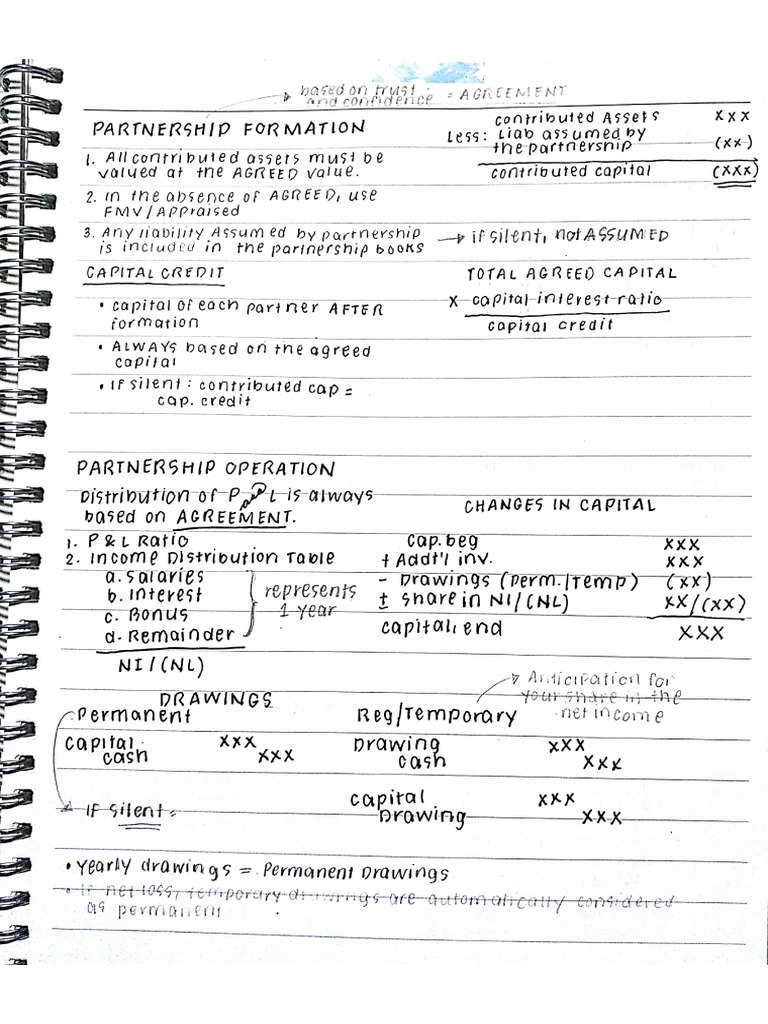 based on trust
and confidence = AGREEMENT
PARTNERSHIP FORMATION
1. All contributed assets must be
valued at the AGREED value.
2. In the absence of AGREED, use
FMV/Appraised
3. Any liability Assumed by partnership
is included in the partnership books → if silent, not ASSUMED
contributed Assets xxx
Less: Liab assumed by
the partnership (xx)
contributed capital (xxx)
CAPITAL CREDIT
• capital of each partner AFTER
formation
• ALWAYS based on the agreed
capital
• If silent: contributed cap =
cap. credit
TOTAL AGREED CAPITAL
x capital interest ratio
capital credit
PARTNERSHIP OPERATION
Distribution of P and L is always
based on AGREEMENT.
1. P & L Ratio
2. Income Distribution Table
a. Salaries
b. Interest
c. Bonus
d. Remainder
represents
1 year
NI/(NL)
CHANGES IN CAPITAL
Cap. beg xxx
+ Addt'l inv. xxx
- Drawings (Perm./Temp) (xx)
± share in NI/(NL) xx/(xx)
capital, end xxx
DRAWINGS
Permanent
capital xxx
cash xxx
If silent =
Reg/Temporary
→ Anticipation for
your share in the
net income
Drawing xxx
cash xxx
capital xxx
Drawing xxx
• Yearly drawings = Permanent Drawings
• If net loss, temporary drawings are automatically considered
as permanent